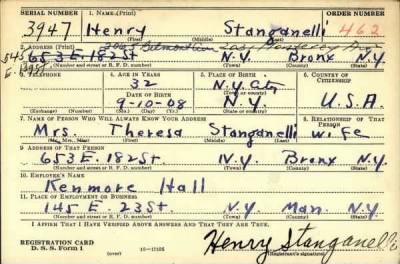 SERIAL NUMBER 1. NAME (Print) ORDER NUMBER
3947 Henry Stanganelli 462
(First) (Middle) (Last)
2. ADDRESS (Print)
545 653 E. 182 St. N.Y. Bronx N.Y.
(Number and street or R. F. D. number) (Town) (County) (State)
3. TELEPHONE 4. AGE IN YEARS 5. PLACE OF BIRTH 6. COUNTRY OF CITIZENSHIP
32 N.Y. Cty
DATE OF BIRTH (Town or county)
9-10-08 N.Y. U.S.A.
(Exchange) (Number) (Mo.) (Day) (Yr.) (State or country)
7. NAME OF PERSON WHO WILL ALWAYS KNOW YOUR ADDRESS 8. RELATIONSHIP OF THAT PERSON
Mrs. Theresa Stanganelli wife
(Mr., Mrs., Miss) (First) (Middle) (Last)
9. ADDRESS OF THAT PERSON
653 E. 182 St. N.Y. Bronx N.Y.
(Number and street or R. F. D. number) (Town) (County) (State)
10. EMPLOYER'S NAME
Kenmore Hall
11. PLACE OF EMPLOYMENT OR BUSINESS
145 E. 23 St. N.Y. Man. N.Y.
(Number and street or R. F. D. number) (Town) (County) (State)
I AFFIRM THAT I HAVE VERIFIED ABOVE ANSWERS AND THAT THEY ARE TRUE.
REGISTRATION CARD
D. S. S. Form 1 (over) Henry Stanganelli
(Registrant's signature)